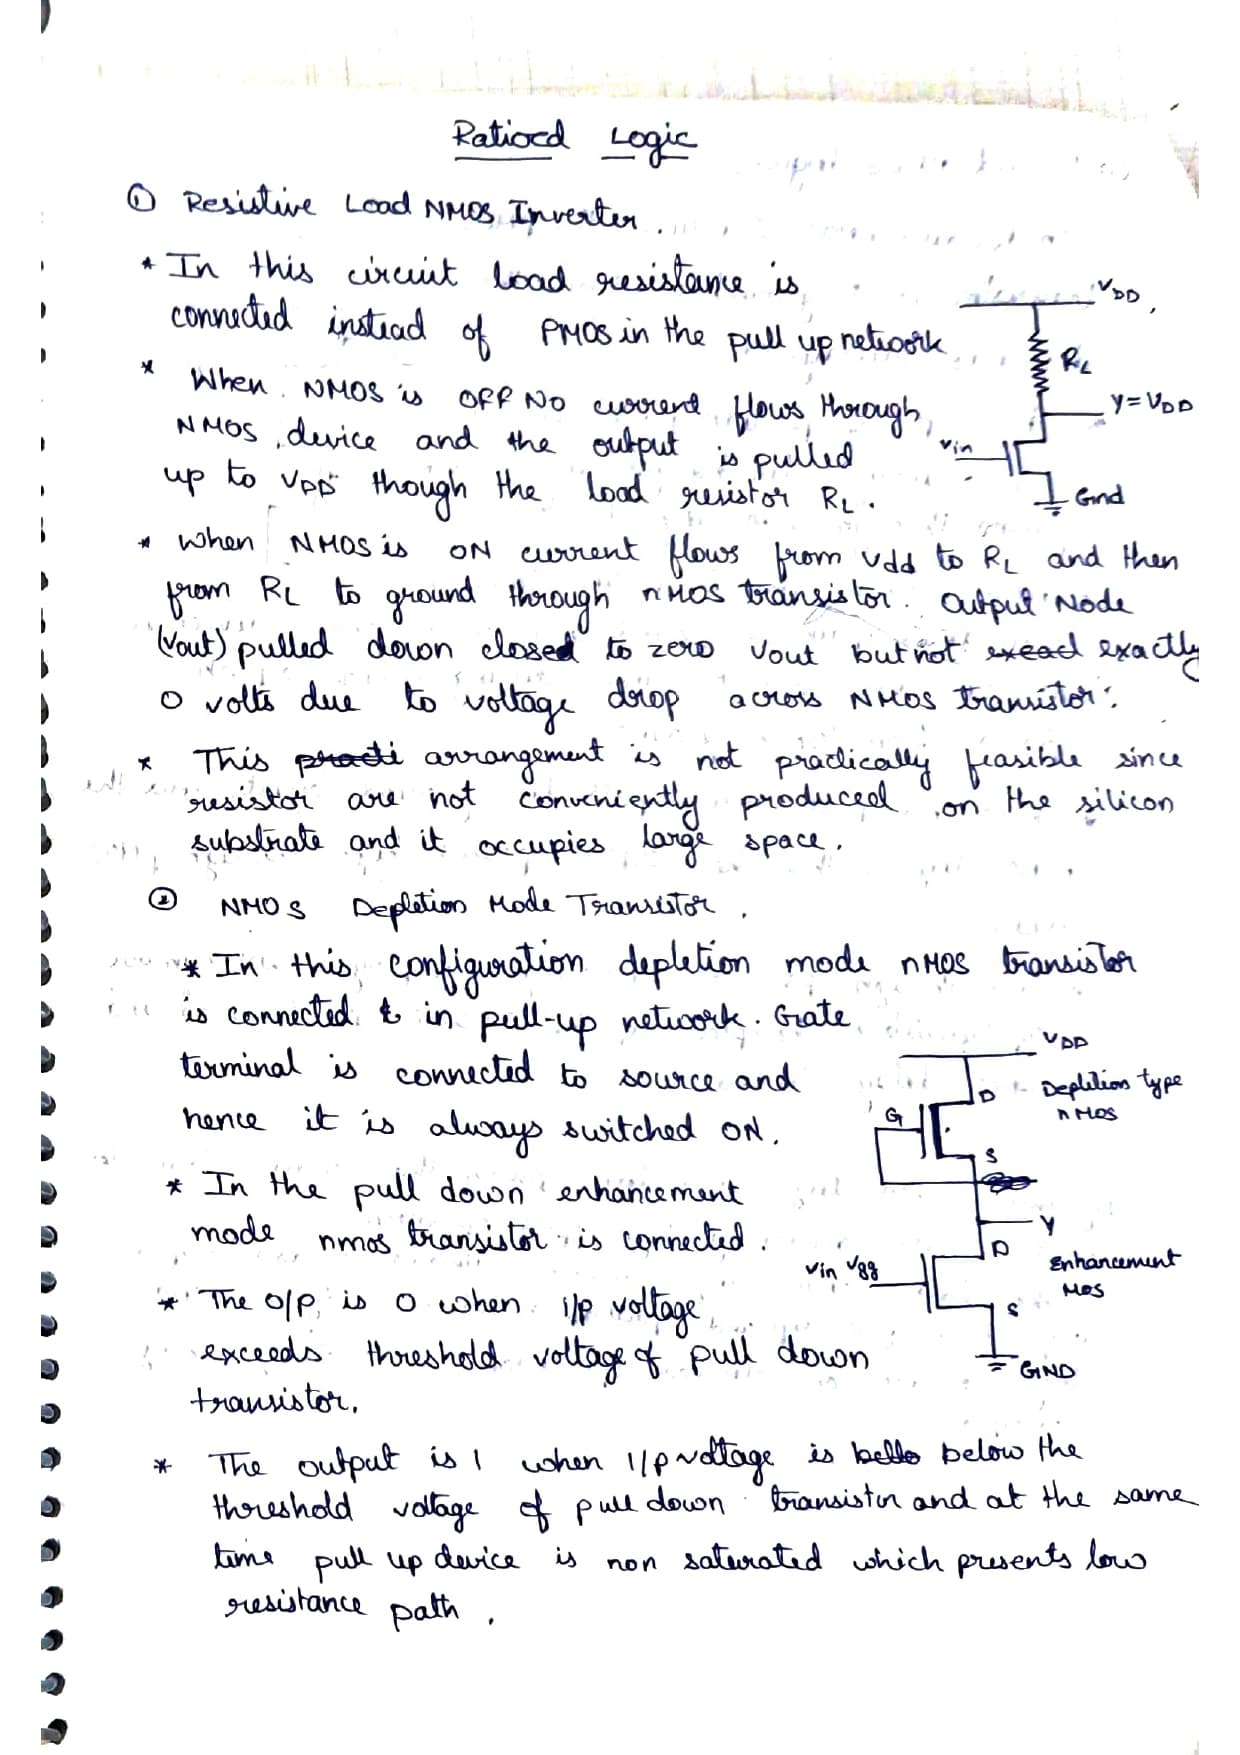 Ratioed Logic
① Resistive Load NMOS Inverter.
* In this circuit load resistance is
connected instead of PMOS in the pull up network
* When NMOS is OFF No current flows through
NMOS device and the output is pulled
up to VDD though the load resistor RL.
VDD
RL
Y = VDD
Vin
Gnd
* When NMOS is ON current flows from Vdd to RL and then
from RL to ground through nMOS transistor. Output Node
(Vout) pulled down closed to zero Vout but not exactly
0 volts due to voltage drop across NMOS transistor.
* This arrangement is not practically feasible since
resistor are not conveniently produced on the silicon
substrate and it occupies large space.
② NMOS Depletion Mode Transistor.
* In this configuration depletion mode nMOS transistor
is connected in pull-up network. Gate
terminal is connected to source and
hence it is always switched ON.
* In the pull down enhancement
mode nmos transistor is connected.
* The o/p is 0 when i/p voltage
exceeds threshold voltage of pull down
transistor.
VDD
D
Depletion type
nMOS
G
S
Y
D
Enhancement
Mos
Vin
S
GND
* The output is 1 when i/p voltage is below the
threshold voltage of pull down transistor and at the same
time pull up device is non saturated which presents low
resistance path.